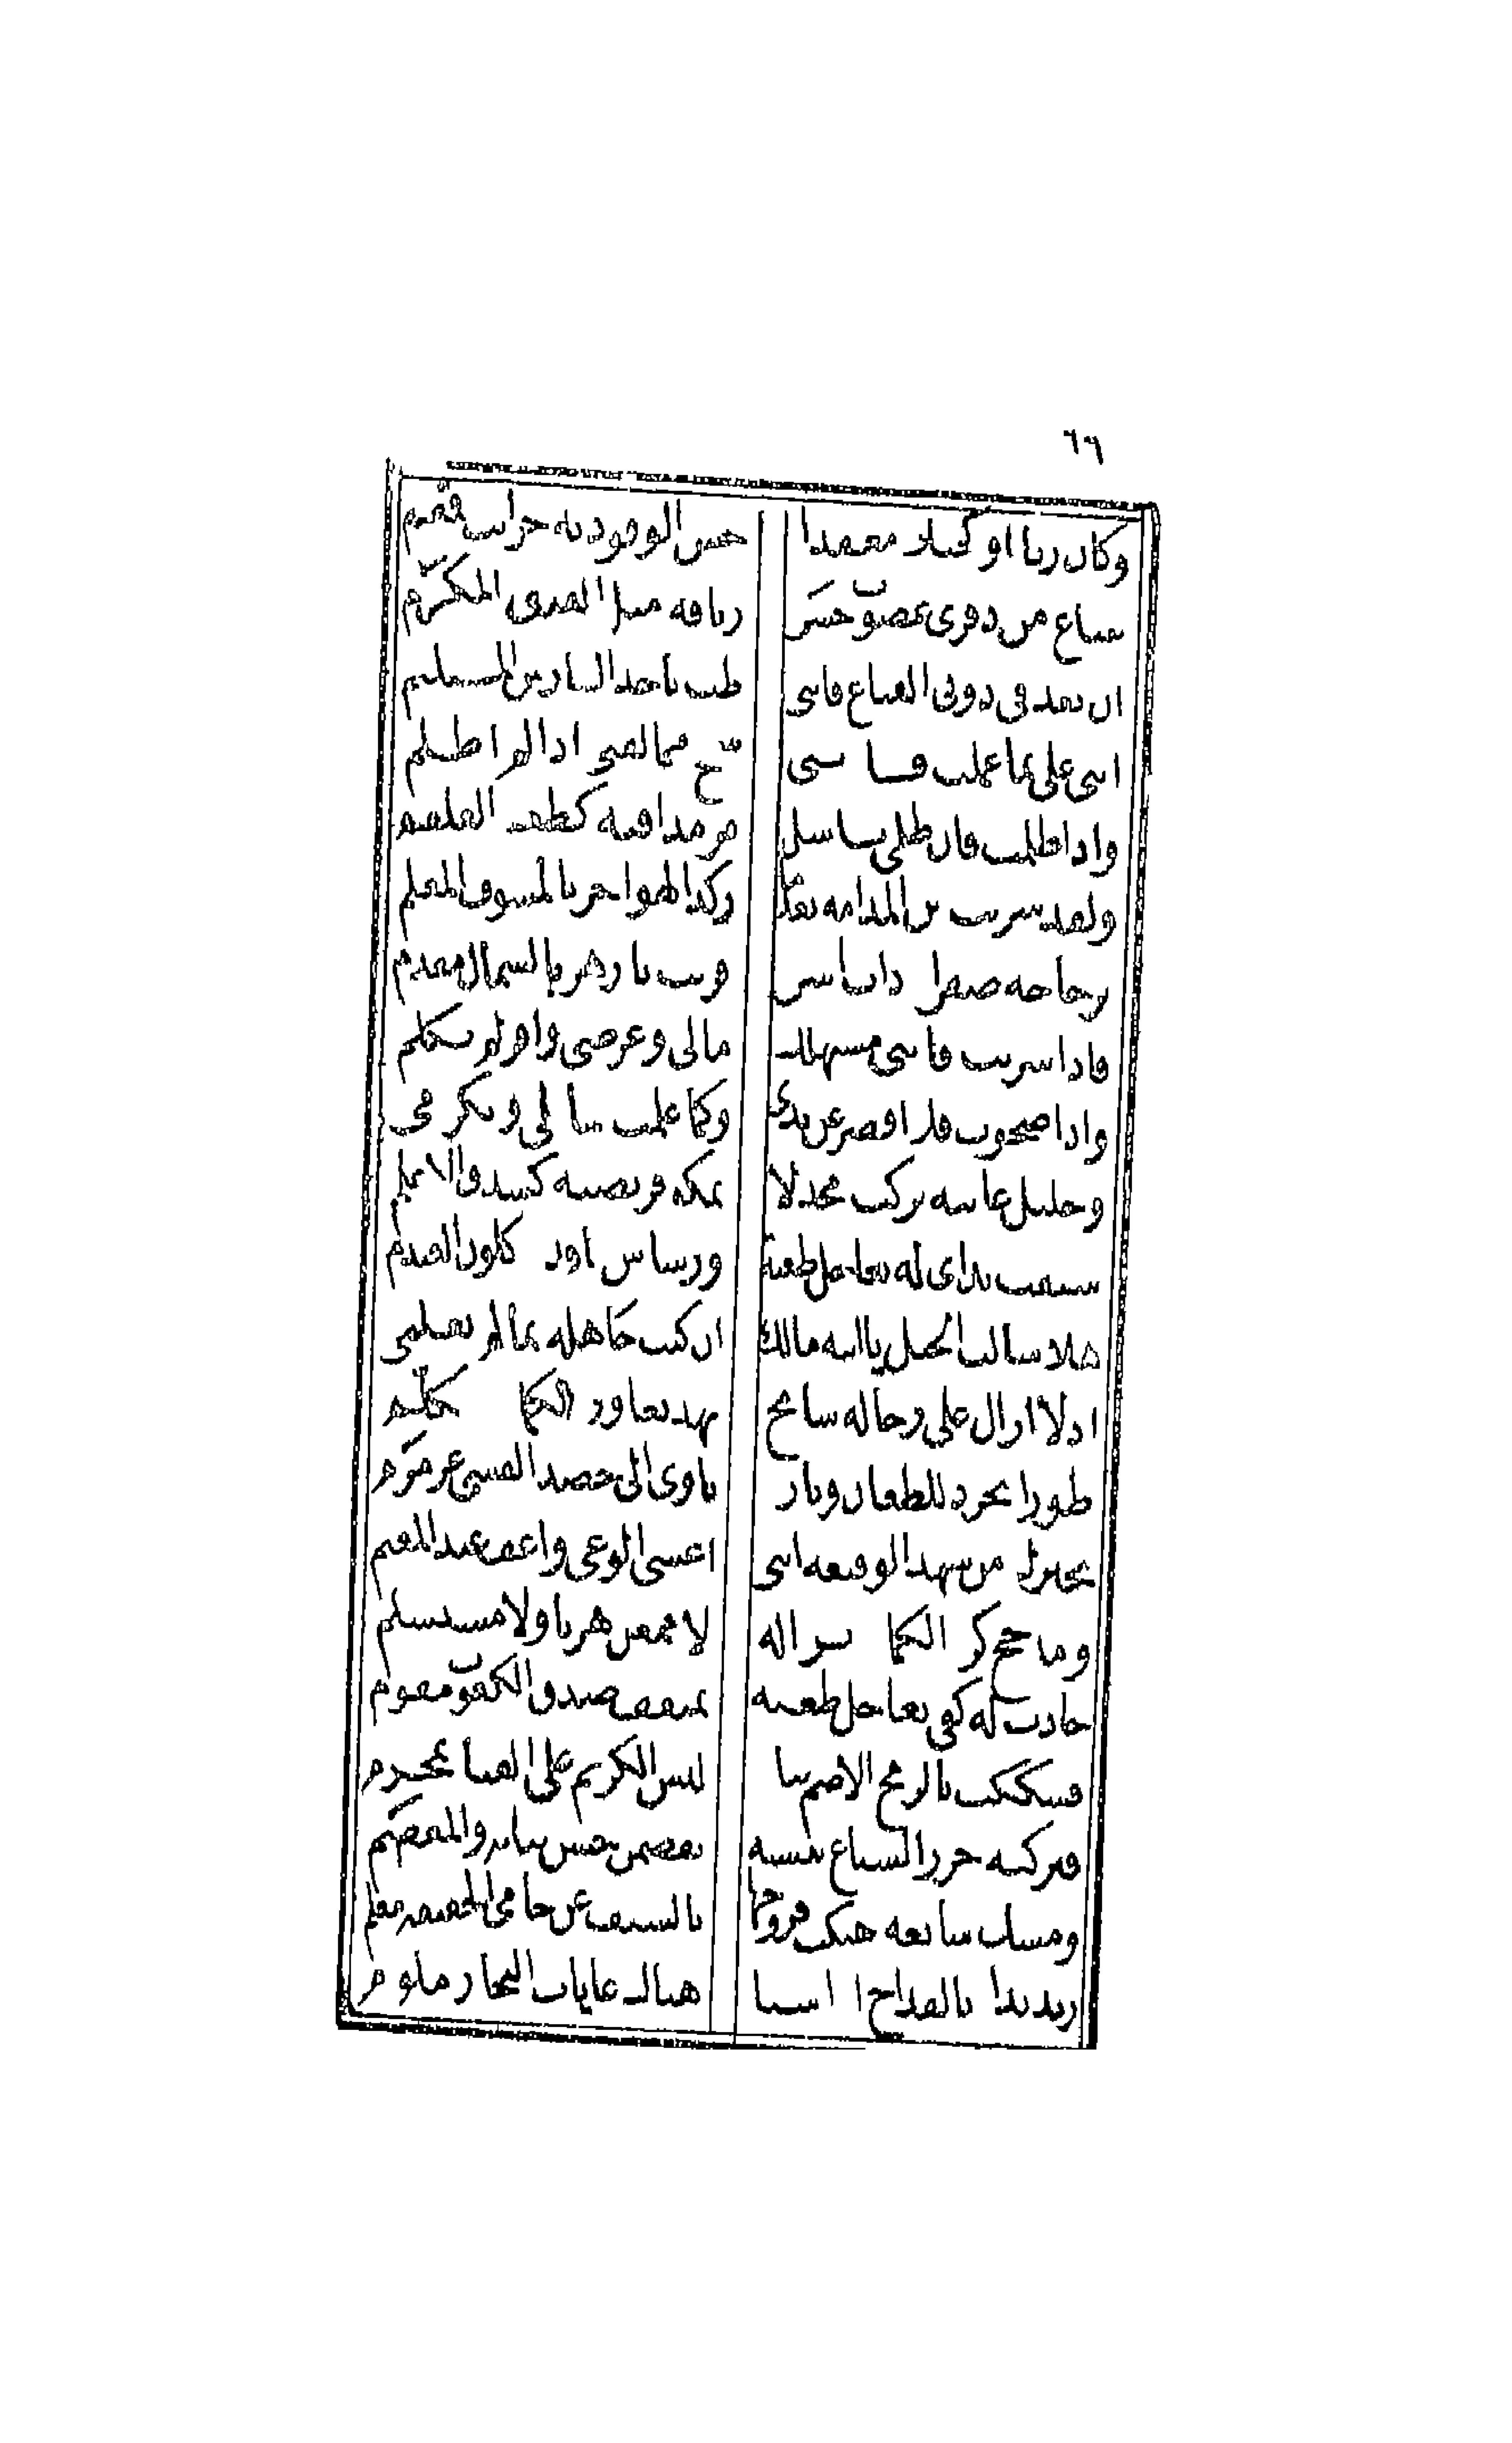 ٦٦
وكان ربا او كحيلا معقدا حش الوقود به جوانب قمقم
ينباع من ذفرى غضوب جسرة زيافة مثل الفنيق المكرم
ان تغدفي دوني القناع فانني طب باخذ الفارس المستلئم
اثني علي بما علمت فانني سمح مخالقتي اذا لم اظلم
واذا ظلمت فان ظلمي باسل مر مذاقته كطعم العلقم
ولقد شربت من المدامة بعدما ركد الهواجر بالمشوف المعلم
بزجاجة صفراء ذات اسرة قرنت بازهر بالشمال مفدم
فاذا شربت فانني مستهلك مالي وعرضي وافر لم يكلم
واذا صحوت فلا اقصر عن ندى وكما علمت شمائلي وتكرمي
وحليل غانية تركت مجدلا تمكو فريصته كشدق الاعلم
سبقت يداي له بعاجل طعنة ورشاش نافذة كلون العندم
هلا سالت الخيل يا ابنة مالك ان كنت جاهلة بما لم تعلمي
اذ لا ازال على رحالة سابح نهد تعاوره الكماة مكلم
طورا يجرد للطعان وتارة ياوي الى حصد القسي عرمرم
يخبرك من شهد الوقيعة انني اغشى الوغى واعف عند المغنم
ومدجج كره الكماة نزاله لا ممعن هربا ولا مستسلم
جادت له كفي بعاجل طعنة بمثقف صدق الكعوب مقوم
فشككت بالرمح الاصم ثيابه ليس الكريم على القنا بمحرم
فتركته جزر السباع ينشنه يقضمن حسن بنانه والمعصم
ومشك سابغة هتكت فروجها بالسيف عن حامي الحقيقة معلم
ربذ يداه بالقداح اذا شتا هتاك غايات التجار ملوم